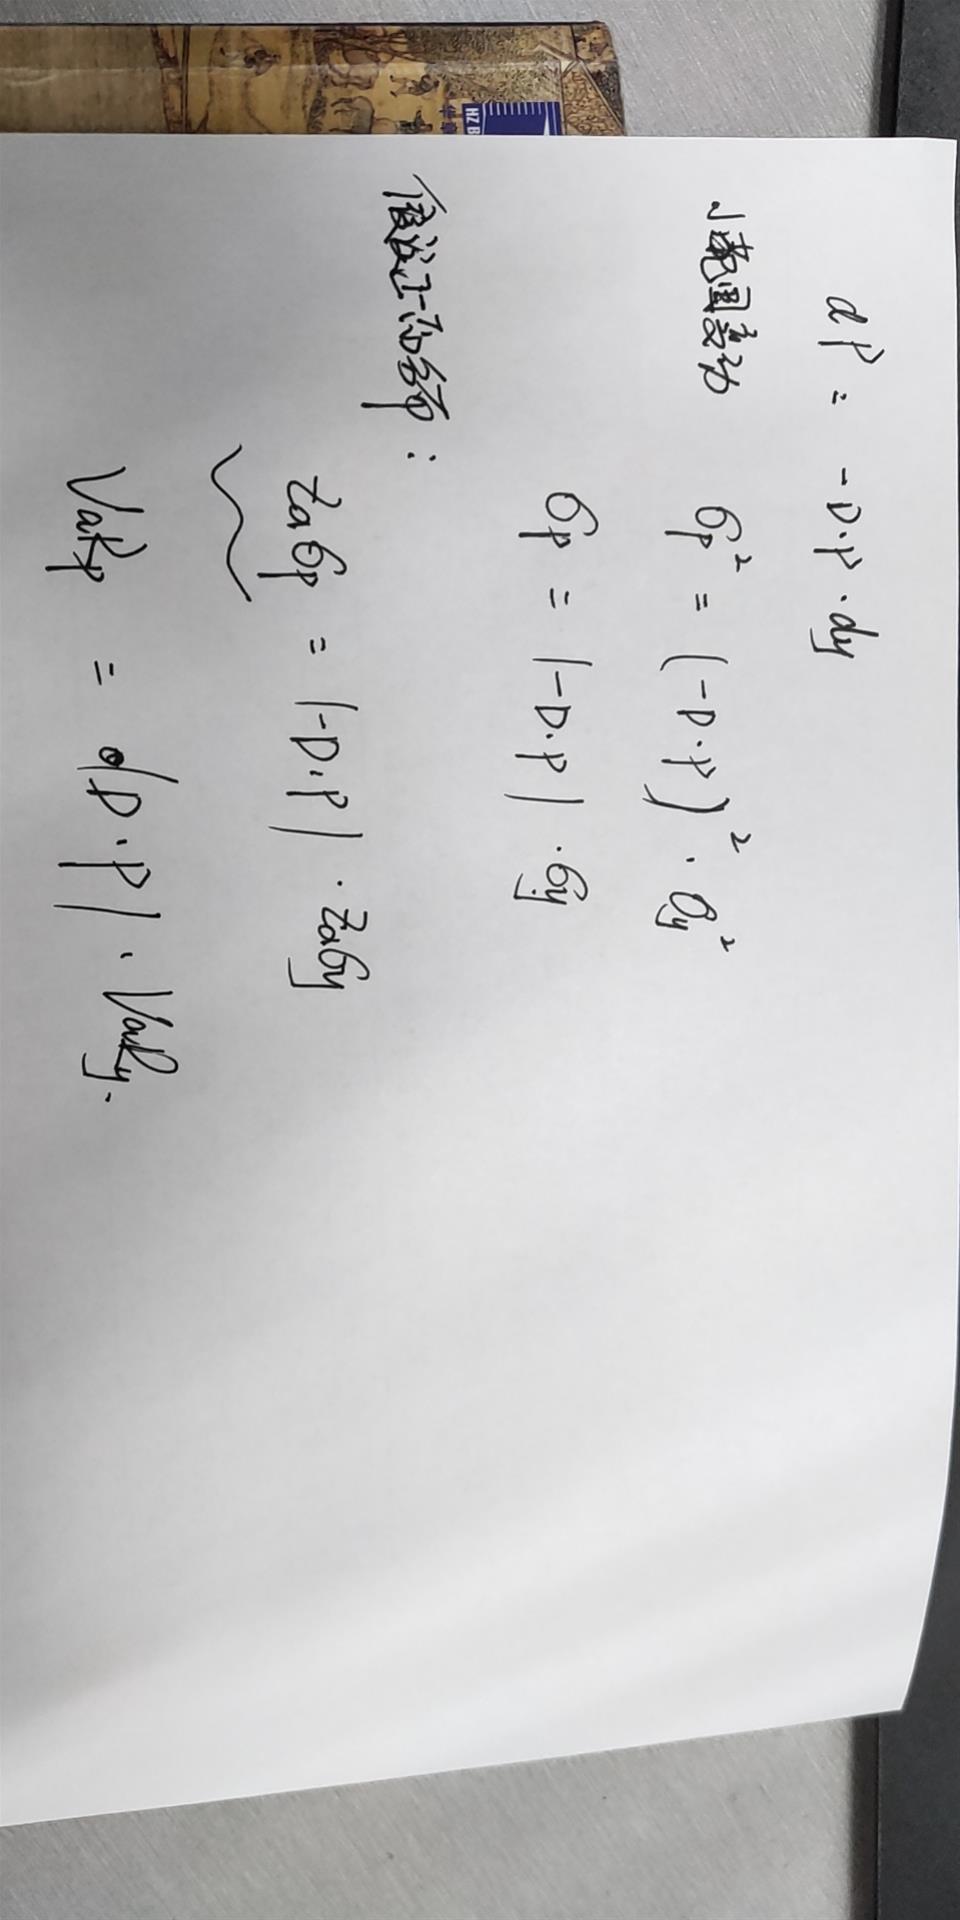 dP = -D·P·dy
小范围变动 σp² = (-D·P)²·σy²
σp = |-D·P|·σy
假设正态分布：
Zασp = |-D·P|·Zασy
VaRp = |D·P|·VaRy.
HZ B